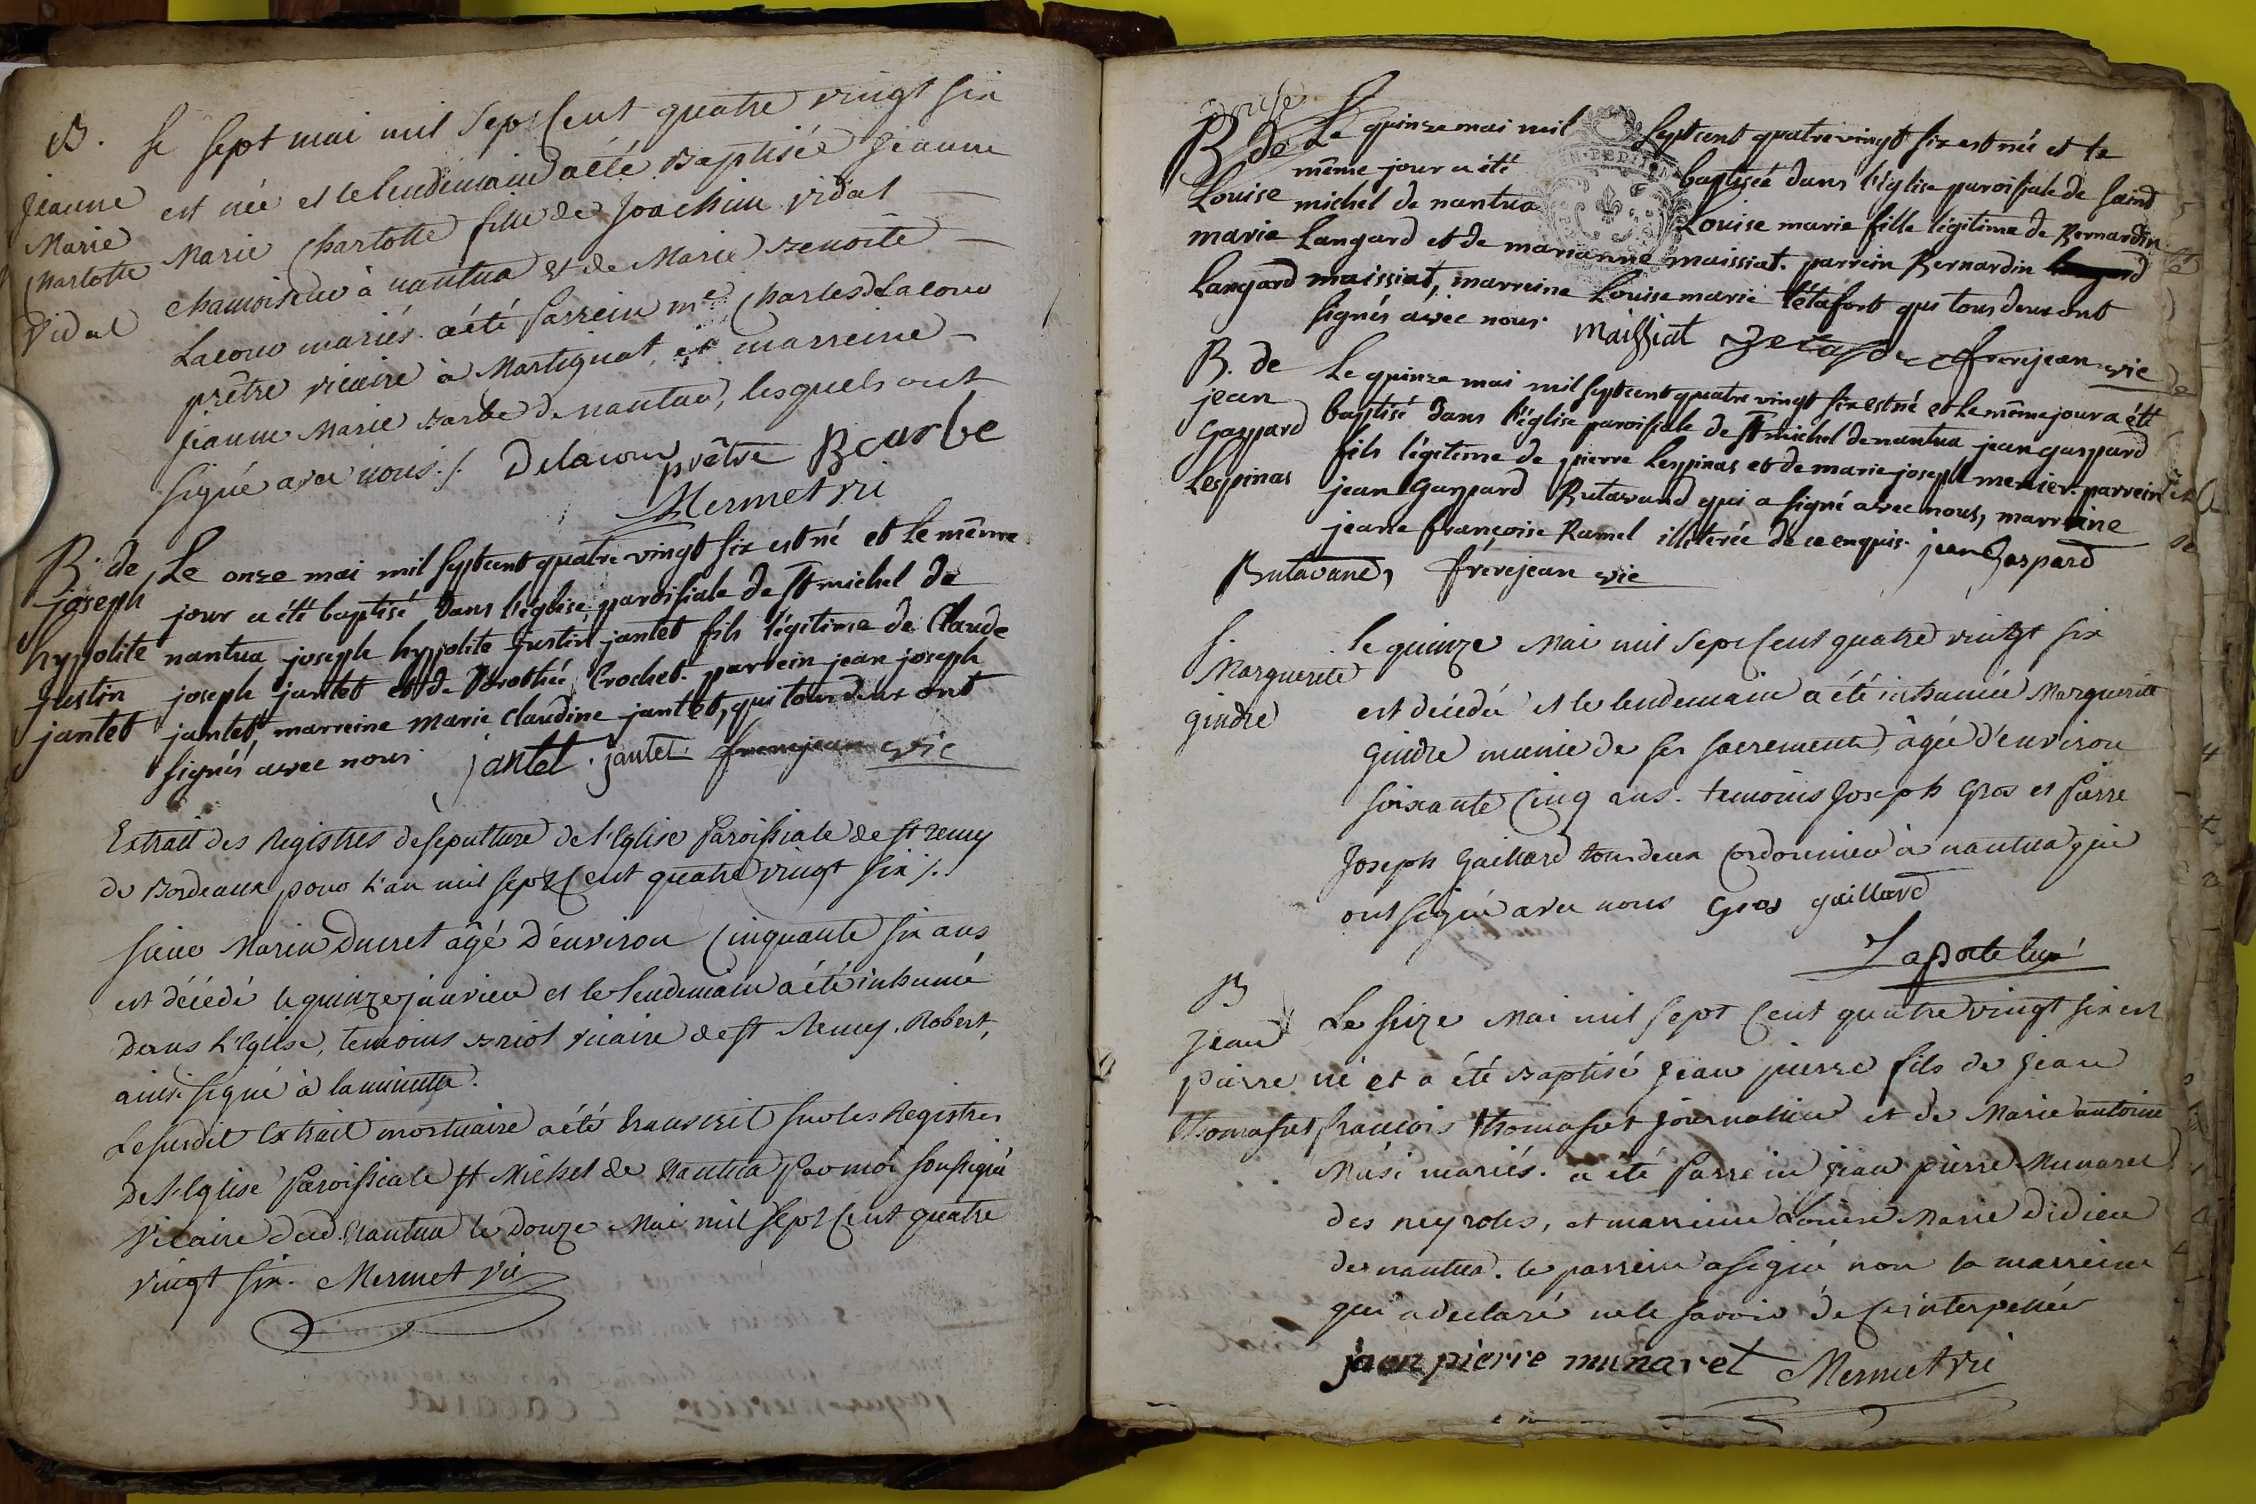 B.
Jeanne
Marie
Charlotte
Vidal
Le sept mai mil Sept Cent quatre vingt six
est née et le lendemain a été Baptisée Jeanne
Marie Charlotte fille de Joachim Vidal
chamoiseur à nantua et de Marie Benoite
Lacour mariés. a été parrein me. Charles Delacour
prêtre vicaire à Martignat, et marreine
jeanne Marie Barbe de nantua, lesquels ont
signé avec nous ./. Delacour prêtre Barbe
Mermet vic
B. de
joseph
hyppolite
justin
jantet
Le onze mai mil septcent quatre vingt six est né et le même
jour a été baptisé dans l'eglise paroissiale de St michel de
nantua joseph hyppolite justin jantet fils légitime de Claude
joseph jantet et de Dorothée Crochet. parrein jean joseph
jantet, marreine marie claudine jantet, qui tous deux ont
signés avec nous jantet . jantet frerejean vic
Extrait des Registres de sepulture de l'Eglise Paroissiale de st remy
de Bordeaux pour l'an mil sept Cent quatre vingt six /.
sieur Marin Ducret âgé d'environ Cinquante six ans
est décédé le quinze janvier et le lendemain a été inhumé
dans l'Eglise, temoins Briol vicaire de st Remy, Robert,
ainsi signé à la minutte.
Le susdit Extrait mortuaire a été transcrit sur les Registres
de l'Eglise Paroissiale st Michel de Nantua par moi soussigné
Vicaire dud. Nantua le douze Mai mil sept Cent quatre
vingt six. Mermet vic
douse
B de
Louise
marie
Langard
Le quinze mai mil septcent quatre vingt six est née et le
même jour a été baptisée dans l'église paroissiale de saint
michel de nantua Louise marie fille légitime de Bernardin
Langard et de marianne maissiat. parrein Bernardin
maissiat, marreine Louise marie létafort qui tous deux ont
signés avec nous. Maissiat frerejean vic
B. de
jean
Gaspard
Lespinas
Le quinze mai mil septcent quatre vingt six est né et le même jour a été
baptisé dans l'église paroissiale de St michel de nantua jean gaspard
fils légitime de pierre Lespinas et de marie joseph menier. parrein
jean Gaspard Butavand qui a signé avec nous, marreine
jeane françoise Ramel illeterée de ce enquis. jean Gaspard
Butavand, frérejean vic
S.
Marguerite
gindre
le quinze Mai mil Sept Cent quatre vingt six
est décédée et le lendemain a été inhumée Marguerite
Gindre munie de ses sacrements, âgée d'environ
soixante Cinq ans. temoins Joseph Gros et Pierre
Joseph Gaillard tous deux Cordonniers à nantua qui
ont signé avec nous Gros gaillard
Laporte curé
B
Jean
Pierre
thomasset
Le seize Mai mil sept Cent quatre vingt six est
né et a été Baptisé Jean pierre fils de Jean
françois thomasset journalier et de Marie antoine
Musi mariés. a été parrein jean pierre Munaret
des neyroles, et marreine Louise Marie Didier
de nantua. le parrein a signé non la marreine
qui a declaré ne le savoir de Ce interpellée
jean pierre munaret Mermet vic